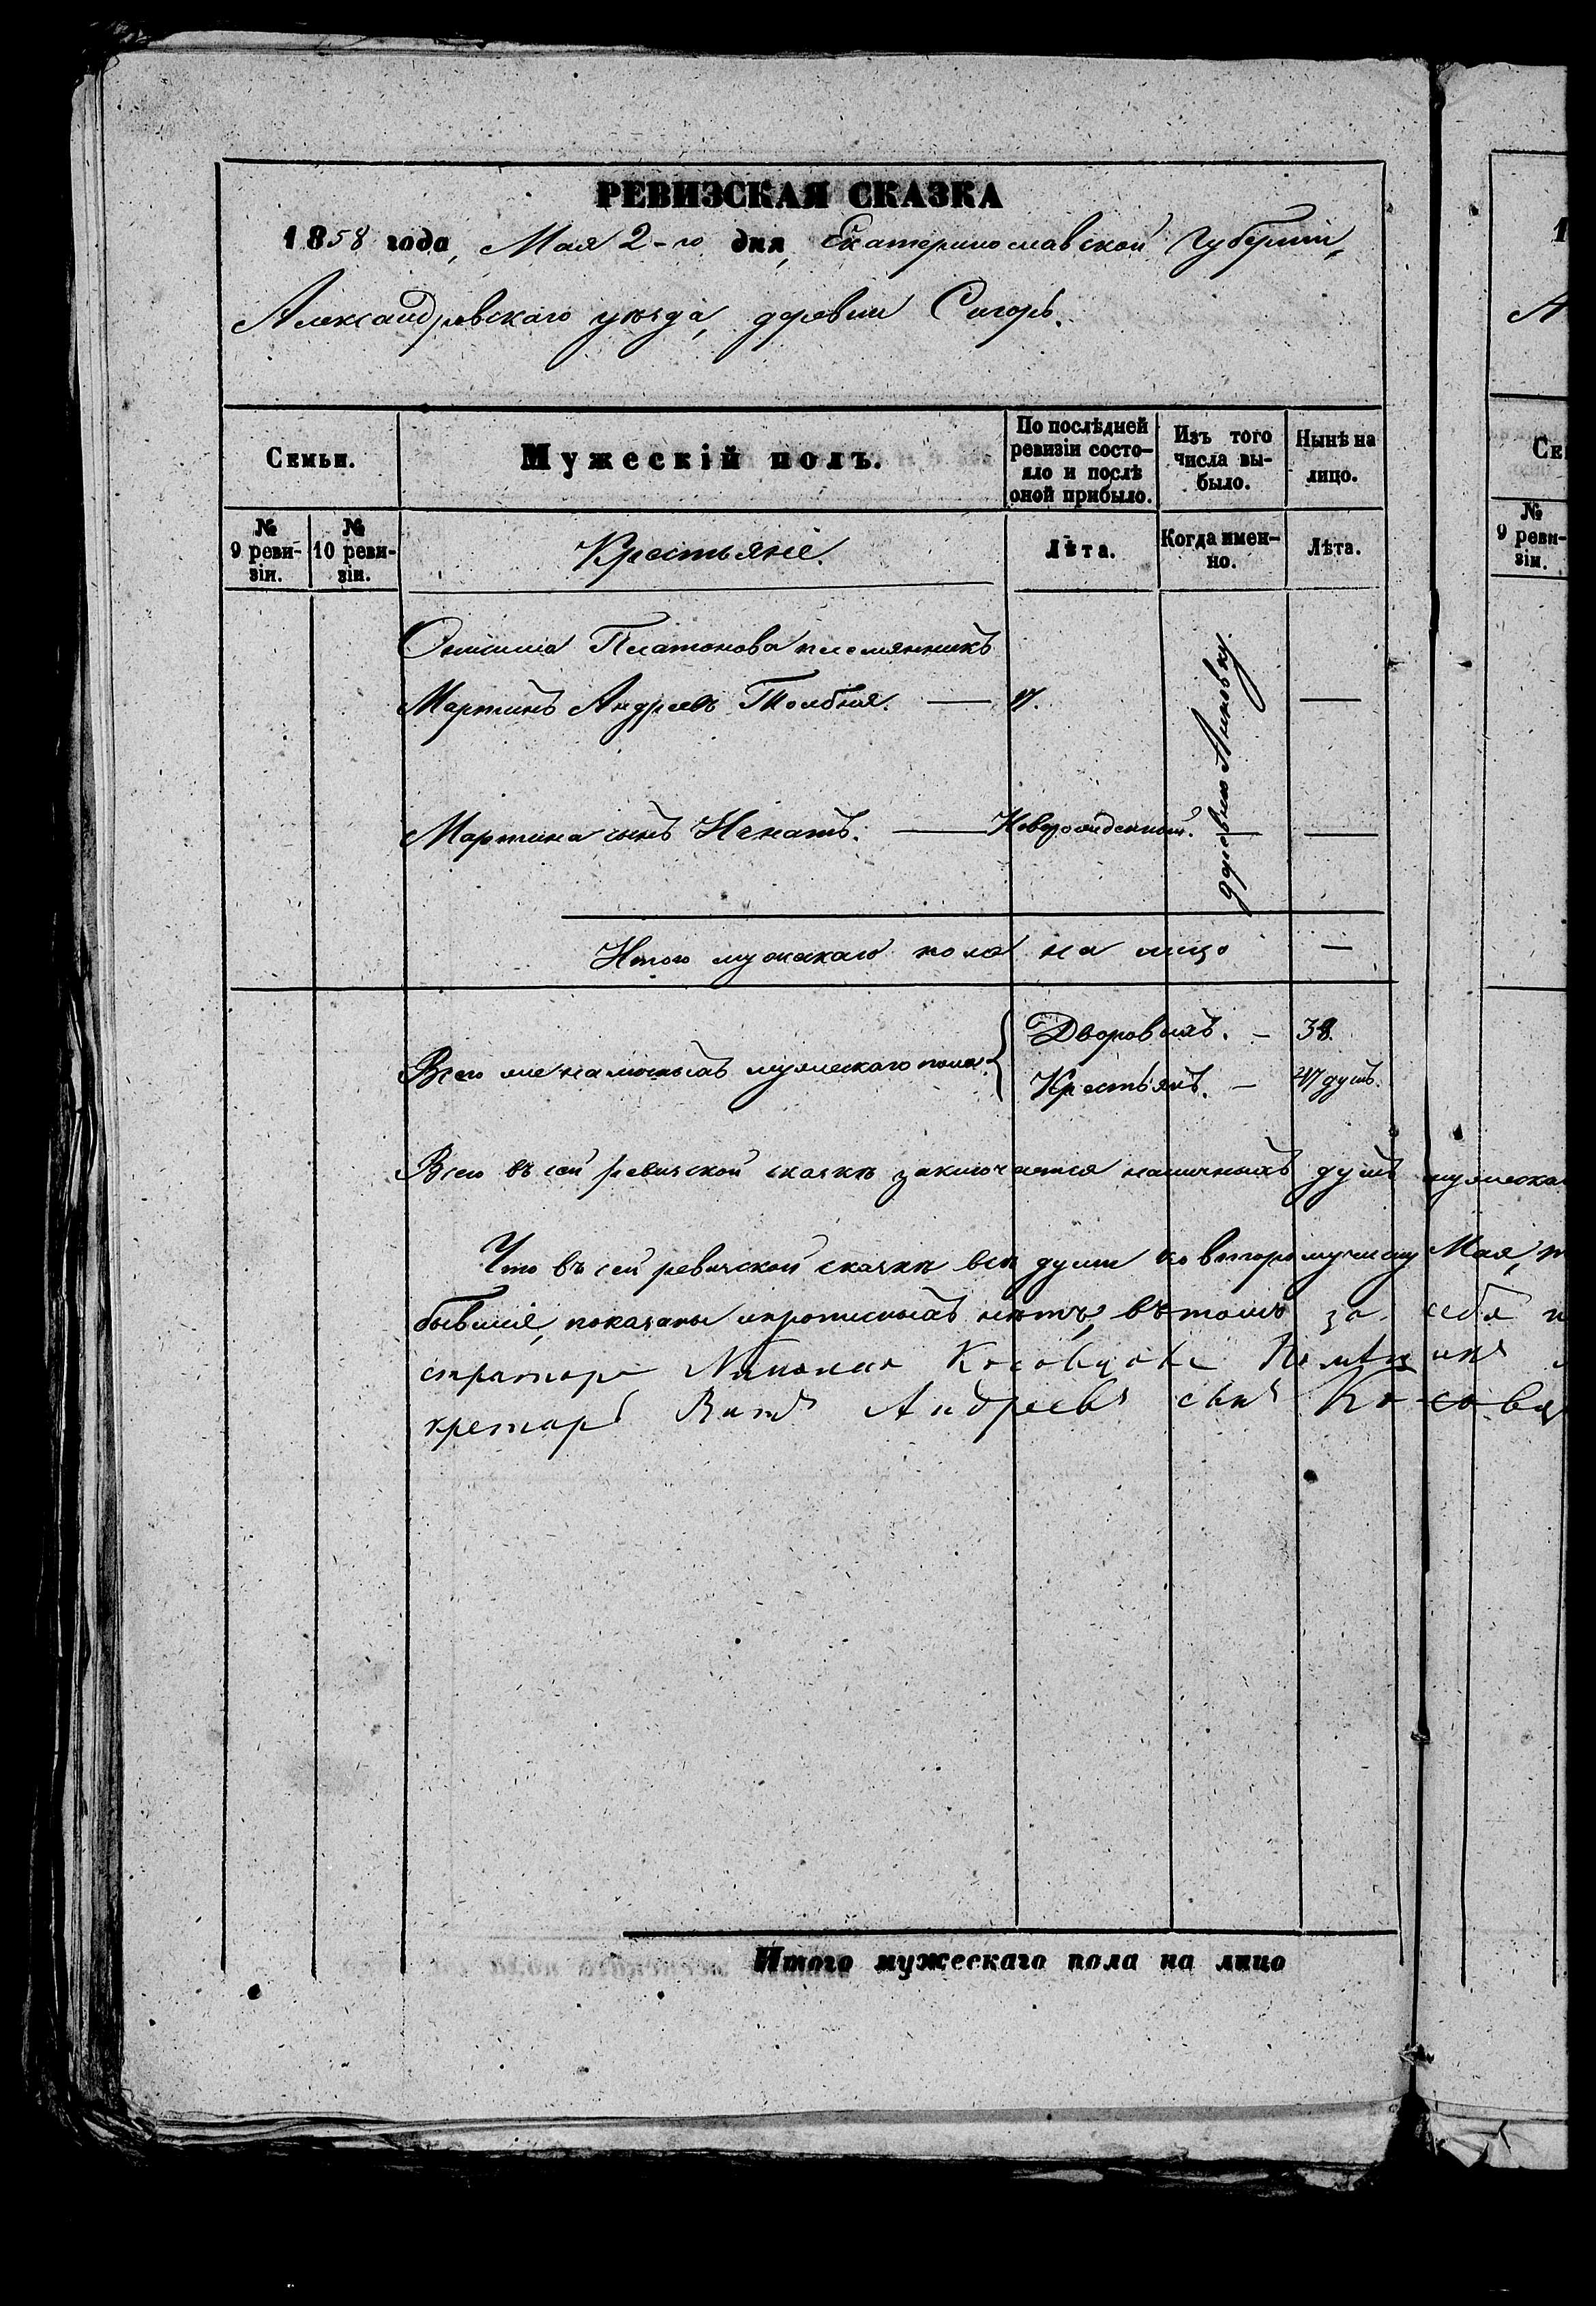 РЕВИЗСКАЯ СКАЗКА
1858 года, Мая 2-го дня, Екатеринославской Губерніи,
Александровскаго уѣзда, деревни
Семьи.
Мужескій полъ.
По послѣдней ревизіи состо-
яло и послѣ
оной прибыло.
Изъ того
числа вы-
было.
Нынѣ на
лицо.
№
9 реви-
зіи.
№
10 реви-
зіи.
Крестьяне.
Лѣта.
Когда имен-
но.
Лѣта.
Платонова племянникъ
Мартинъ Андреевъ
Мартина сынъ Игнатъ. — Новорожденный. — —
деревню
Итого мужскаго пола на лицо —
Всего же наличныхъ мужескаго пола
Дворовыхъ. — 38.
Крестьянъ. — душъ.
Всего въ сей ревизской сказкѣ заключается наличныхъ душъ мужеска
Что въ сей ревизской сказкѣ всѣ души ко второму числу Мая,
бывшіе, показаны и прописныхъ нѣтъ, въ томъ за себя и
стратора
кретарь Андреевъ сынъ
Итого мужескаго пола на лицо
1
А
Се
№
9 реви-
зіи.